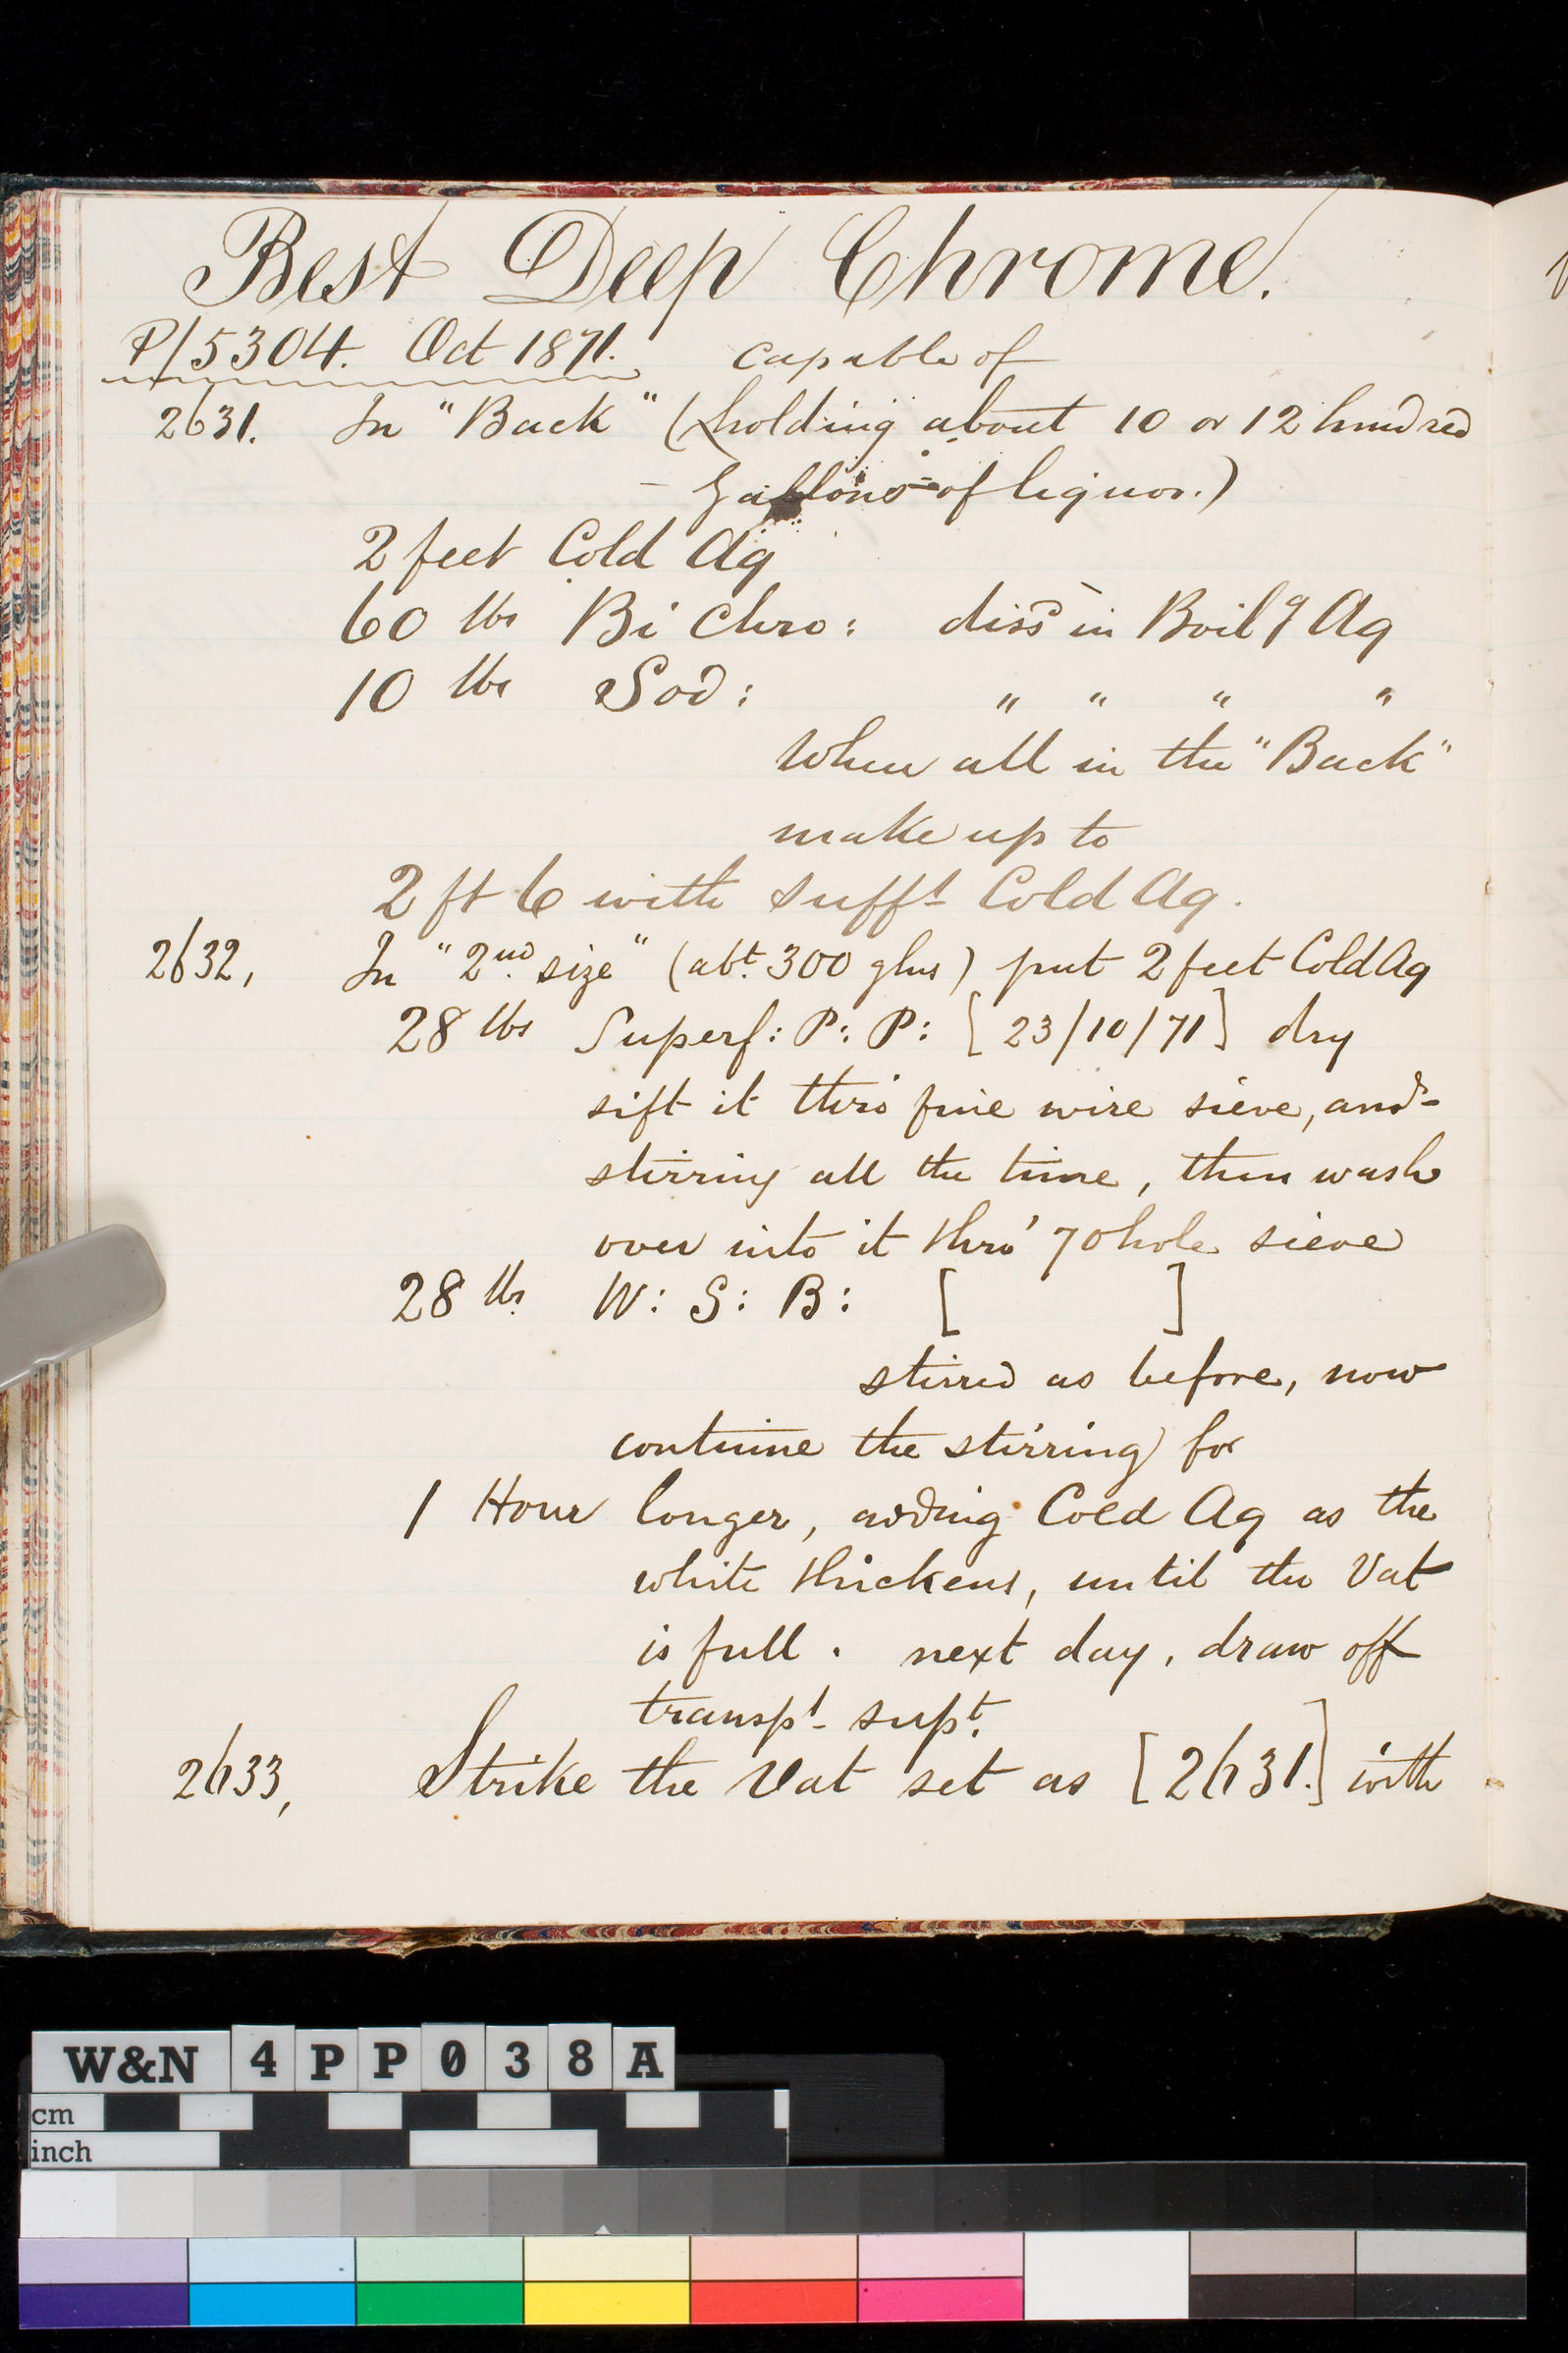 Best Deep Chrome.
P/5304. Oct 1871. capable of
2631. In "Back" (holding about 10 or 12 hundred
- Gallons - of liquor.)
2 feet Cold Aq
60 lbs Bi Chro: diss^d in Boil^g Aq
10 lbs Sod: " " " "
When all in the "Back"
make up to
2 ft 6 with suff^t Cold Aq.
2632, In "2^nd size" (ab^t. 300 glns) put 2 feet Cold Aq
28 lbs Superf: P: P: [23/10/71] dry
sift it thro' fine wire sieve, and -
stirring all the time, then wash
over into it thro' 70 hole sieve
28 lbs W: S: B: [ ]
stirred as before, now
continue the stirring for
1 Hour longer, adding Cold Aq as the
white thickens, until the Vat
is full. next day, draw off
transp^t sup^t.
2633, Strike the Vat set as [2631.] with
W&N 4PP038A
cm
inch